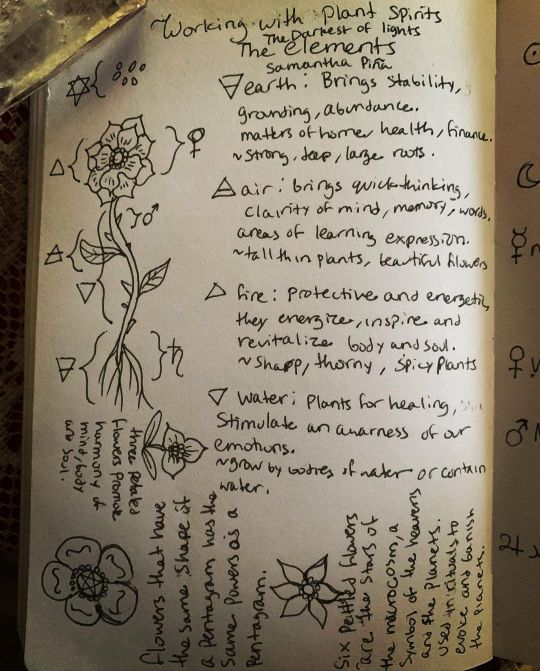 Working with Plant Spirits
The Darkest of lights
The elements
Samantha Piña
earth: Brings stability,
grounding, abundance.
matters of home, health, finance.
~strong, deep, large roots.
air: brings quick-thinking,
clairity of mind, memory, words,
areas of learning expression.
~tall thin plants, beautiful flowers
fire: protective and energetic,
they energize, inspire and
revitalize body and soul.
~sharp, thorny, spicy plants
water: Plants for healing,
Stimulate an awarness of our
emotions.
~grow by bodies of water or contain
water.
three petaled
flowers promote
harmony of
mind, body
and soul.
flowers that have
the same shape of
a pentagram has the
same powers as a
pentagram.
Six pettled flowers
are the stars of
the macrocosm, a
symbol of the heavens
and the planets.
used in rituals to
evoke and banish
the planets.